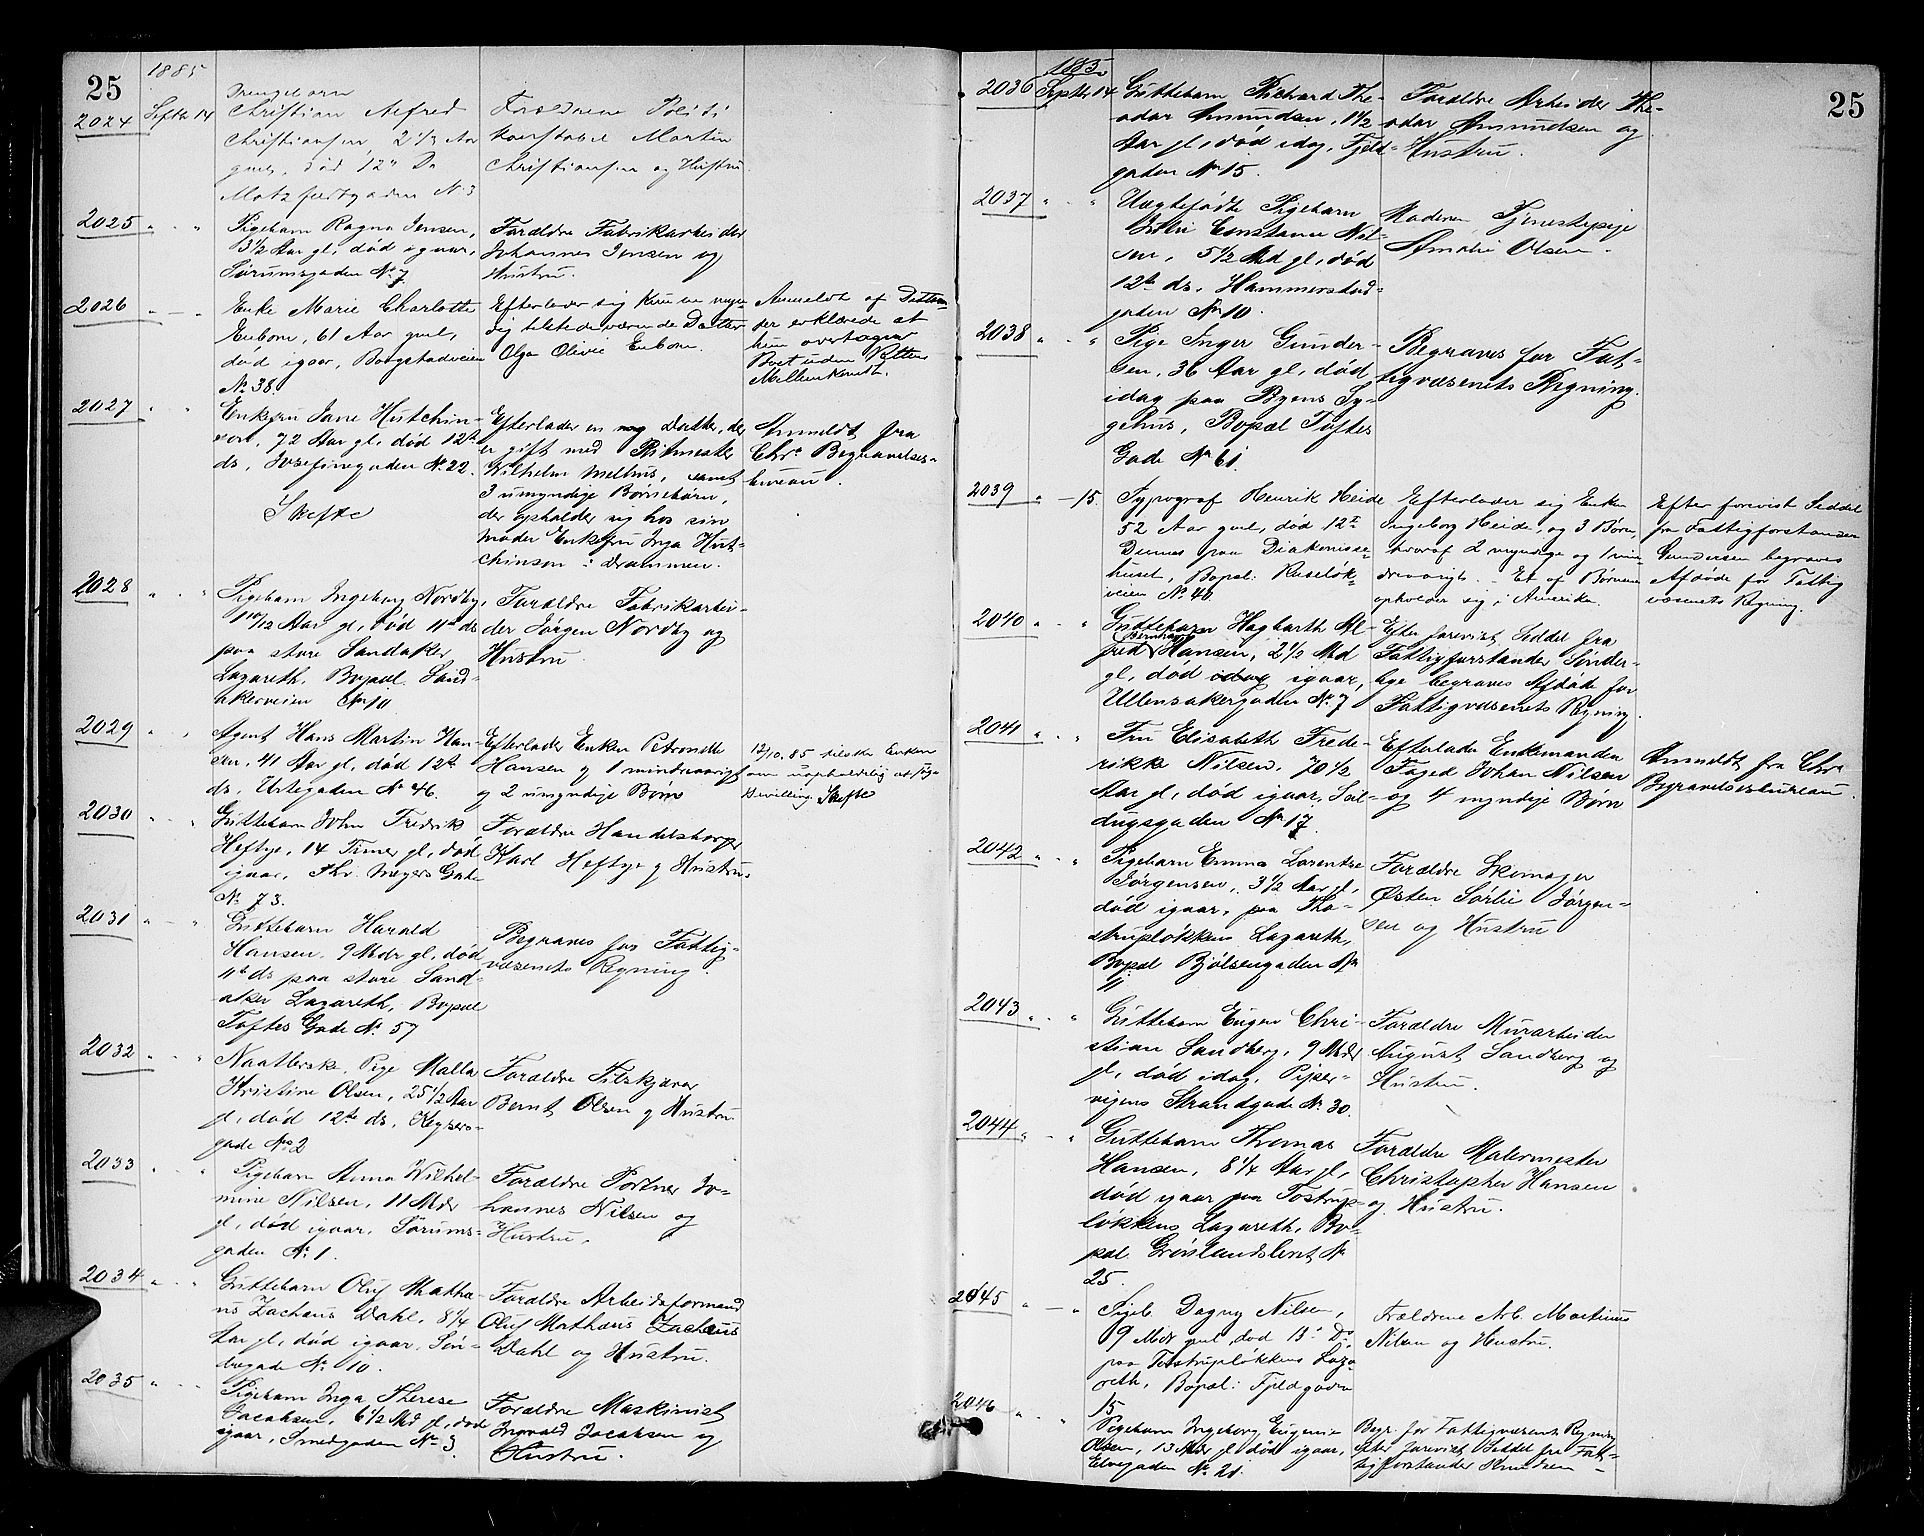 25
1885
2024 Septbr 14
Drengebarn
Christian Alfred
Christiansen, 2 1/2 Aar
gml, død 12te Ds
Motzfeldtgaden No 3
Forældrene Politi
konstabel Martin
Christiansen og Hustru
2025 " - "
Pigebarn Ragna Jensen,
3 1/2 Aar gl, død igaar,
Sørumsgaden No 7
Forældre Fabrikarbeider
Johannes Jensen og
Hustru.
2026 " - "
Enke Marie Charlotte
Enbom, 61 Aar gml,
død igaar, Bogstadveien
No 38
Efterlader sig kun en myn
dig tilstedeværende Datter
Olga Olivie Enbom.
Anmeldt af Datteren
der erklærede at
hun overtager
Boet uden Rettens
Mellemkomst.
2027 " "
Enkefru Jane Hutchin-
son, 72 Aar gl, død 12te
ds, Josefinegaden No 22.
Skifte
Efterlader en Datter, der
er gift med Ritmester
Wilhelm Melhus, samt
3 umyndige Børnebørn,
der opholder sig hos sin
moder Enkefru Inga Hut-
chinson i Drammen.
Anmeldt fra
Chra Begravelses-
bureau.
2028 " "
Pigebarn Ingeborg Nordby,
1 10/12 Aar gl, død 11te ds
paa store Sandaker
Lazareth, Bopæl Sand-
akerveien No 10
Forældre Fabrikarbei-
der Jørgen Nordby og
Hustru.
2029 " "
Agent Hans Martin Han-
sen, 41 Aar gl, død 12te
ds, Urtegaden No 46.
Efterlader Enken Petronelle
Hansen og 1 mindreaarigt
og 2 umyndige Børn
12/10 85 tilsken Enken
om uopholdelig at søge
Bevilling. Skifte
2030 " - "
Guttebarn John Fredrik
Heftye, 14 Timer gl, død
igaar, Thv. Meyers Gade
No 73.
Forældre Handelsborger
Karl Heftye og Hustru.
2031 " - "
Guttebarn Harald
Hansen, 9 Mdr gl, død
11te ds paa store Sand-
aker Lazareth, Bopæl
Toftes Gade No 57
Begraves for Fattig-
væsenets Regning.
2032 " - "
Naatlersk. Pige Malla
Kristine Olsen, 25 1/2 Aar
gl, død 12te ds, Keysers-
gade No 2
Forældre Filskjærer
Bernt Olsen og Hustru
2033 " "
Pigebarn Anna Wilhel-
mine Nilsen, 11 Mdr
gl, død igaar, Sørums-
gaden No 1.
Forældre Portner Jo-
hannes Nilsen og
Hustru.
2034 " - "
Guttebarn Oluf Mathæ-
us Zachæus Dahl, 8 1/4
Aar gl, død igaar, Søn-
bogade No 10.
Forældre Arbeidsformand
Oluf Mathæus Zachæus
Dahl og Hustru.
2035 " - "
Pigebarn Inga Therese
Jacobsen, 6 1/2 Md gl, død
igaar, Smedgaden No 3
Forældre Maskinist
Ingvald Jacobsen og
Hustru.
25
1885
2036 Septbr 14
Guttebarn Richard The-
odor Amundsen, 1 1/2
Aar gl, død idag, Fjeld-
gaden No 15.
Forældre Arbeider The-
odor Amundsen og
Hustru.
2037 " - "
Uægtefødte Pigebarn
Constance Niel-
sen, 5 1/2 Md gl, død
12te ds, Hammerstad-
gaden No 10.
Moderen Tjenestepige
Amalie Olsen.
2038 " - "
Pige Inger Gunder-
sen, 36 Aar gl, død
idag paa Byens Sy-
gehus, Bopæl Toftes
Gade No 61.
Begraves for Fat-
tigvæsenets Regning.
2039 " - 15.
Typograf Henrik Heide
52 Aar gml, død 12te
Dennes paa Diakonisse-
huset, Bopæl: Ruseløk-
veien No 40.
Efterlader sig Enken
Ingeborg Heide, og 3 Børn,
hvoraf 2 myndige og 1 min
dreaarigt. - Et af Børnene
opholder sig i Amerika.
Efter forevist Seddel
fra Fattigforstander
Gundersen begraves
Afdøde for Fattig
væsenets Regning.
2040 " - "
Guttebarn Hagbarth Al-
fred Bernhard Hansen, 2 1/2 Md
gl, død idag igaar,
Ullensakergaden No 7
Efter forevist Seddel fra
Fattigforstander Sønder-
bye begraves Afdøde for
Fattigvæsenets Regning.
2041 " - "
Fru Elisabeth Frede-
rikke Nilsen, 70 1/2
Aar gl, død igaar, Seil-
dugsgaden No 17
Efterlader Enkemanden
Foged Johan Nilsen
og 4 myndige Børn
Anmeldt fra Chra
Begravelsesbureau.
2042 " "
Pigebarn Emma Lorentse
Jørgensen, 3 1/2 Aar gl,
død igaar, paa Tho-
strupløkkens Lazareth,
Bopæl Bjølsengaden No
11
Forældre Skomager
Østen Sørlie Jørgen-
sen og Hustru
2043 " - "
Guttebarn Eugen Chri-
stian Sandberg, 9 Mdr
gl, død idag, Piper-
vigens Strandgade No 30.
Forældre Murarbeider
August Sandberg og
Hustru.
2044 " - "
Guttebarn Thomas
Hansen, 8 1/4 Aar gl,
død igaar paa Tostrup-
løkkens Lazareth, Bo-
pæl Grønlandsleret No
25.
Forældre Malermester
Christopher Hansen
og Hustru.
2045 " - "
Pigeb. Dagny Nilsen,
9 Mdr gml, død 13de Ds
paa Tostrupløkkens Laza-
reth, Bopæl: Fjeldgaden
15
Forældrene Arb. Martinus
Nilsen og Hustru.
2046 " "
Pigebarn Ingeborg Eugenie
Olsen, 13 Mdr gl, død igaar,
Elvegaden No 21.
Begr. for Fattigvæsenets Regning
efter forevist Seddel fra Fat-
tigforstander Knudsen -